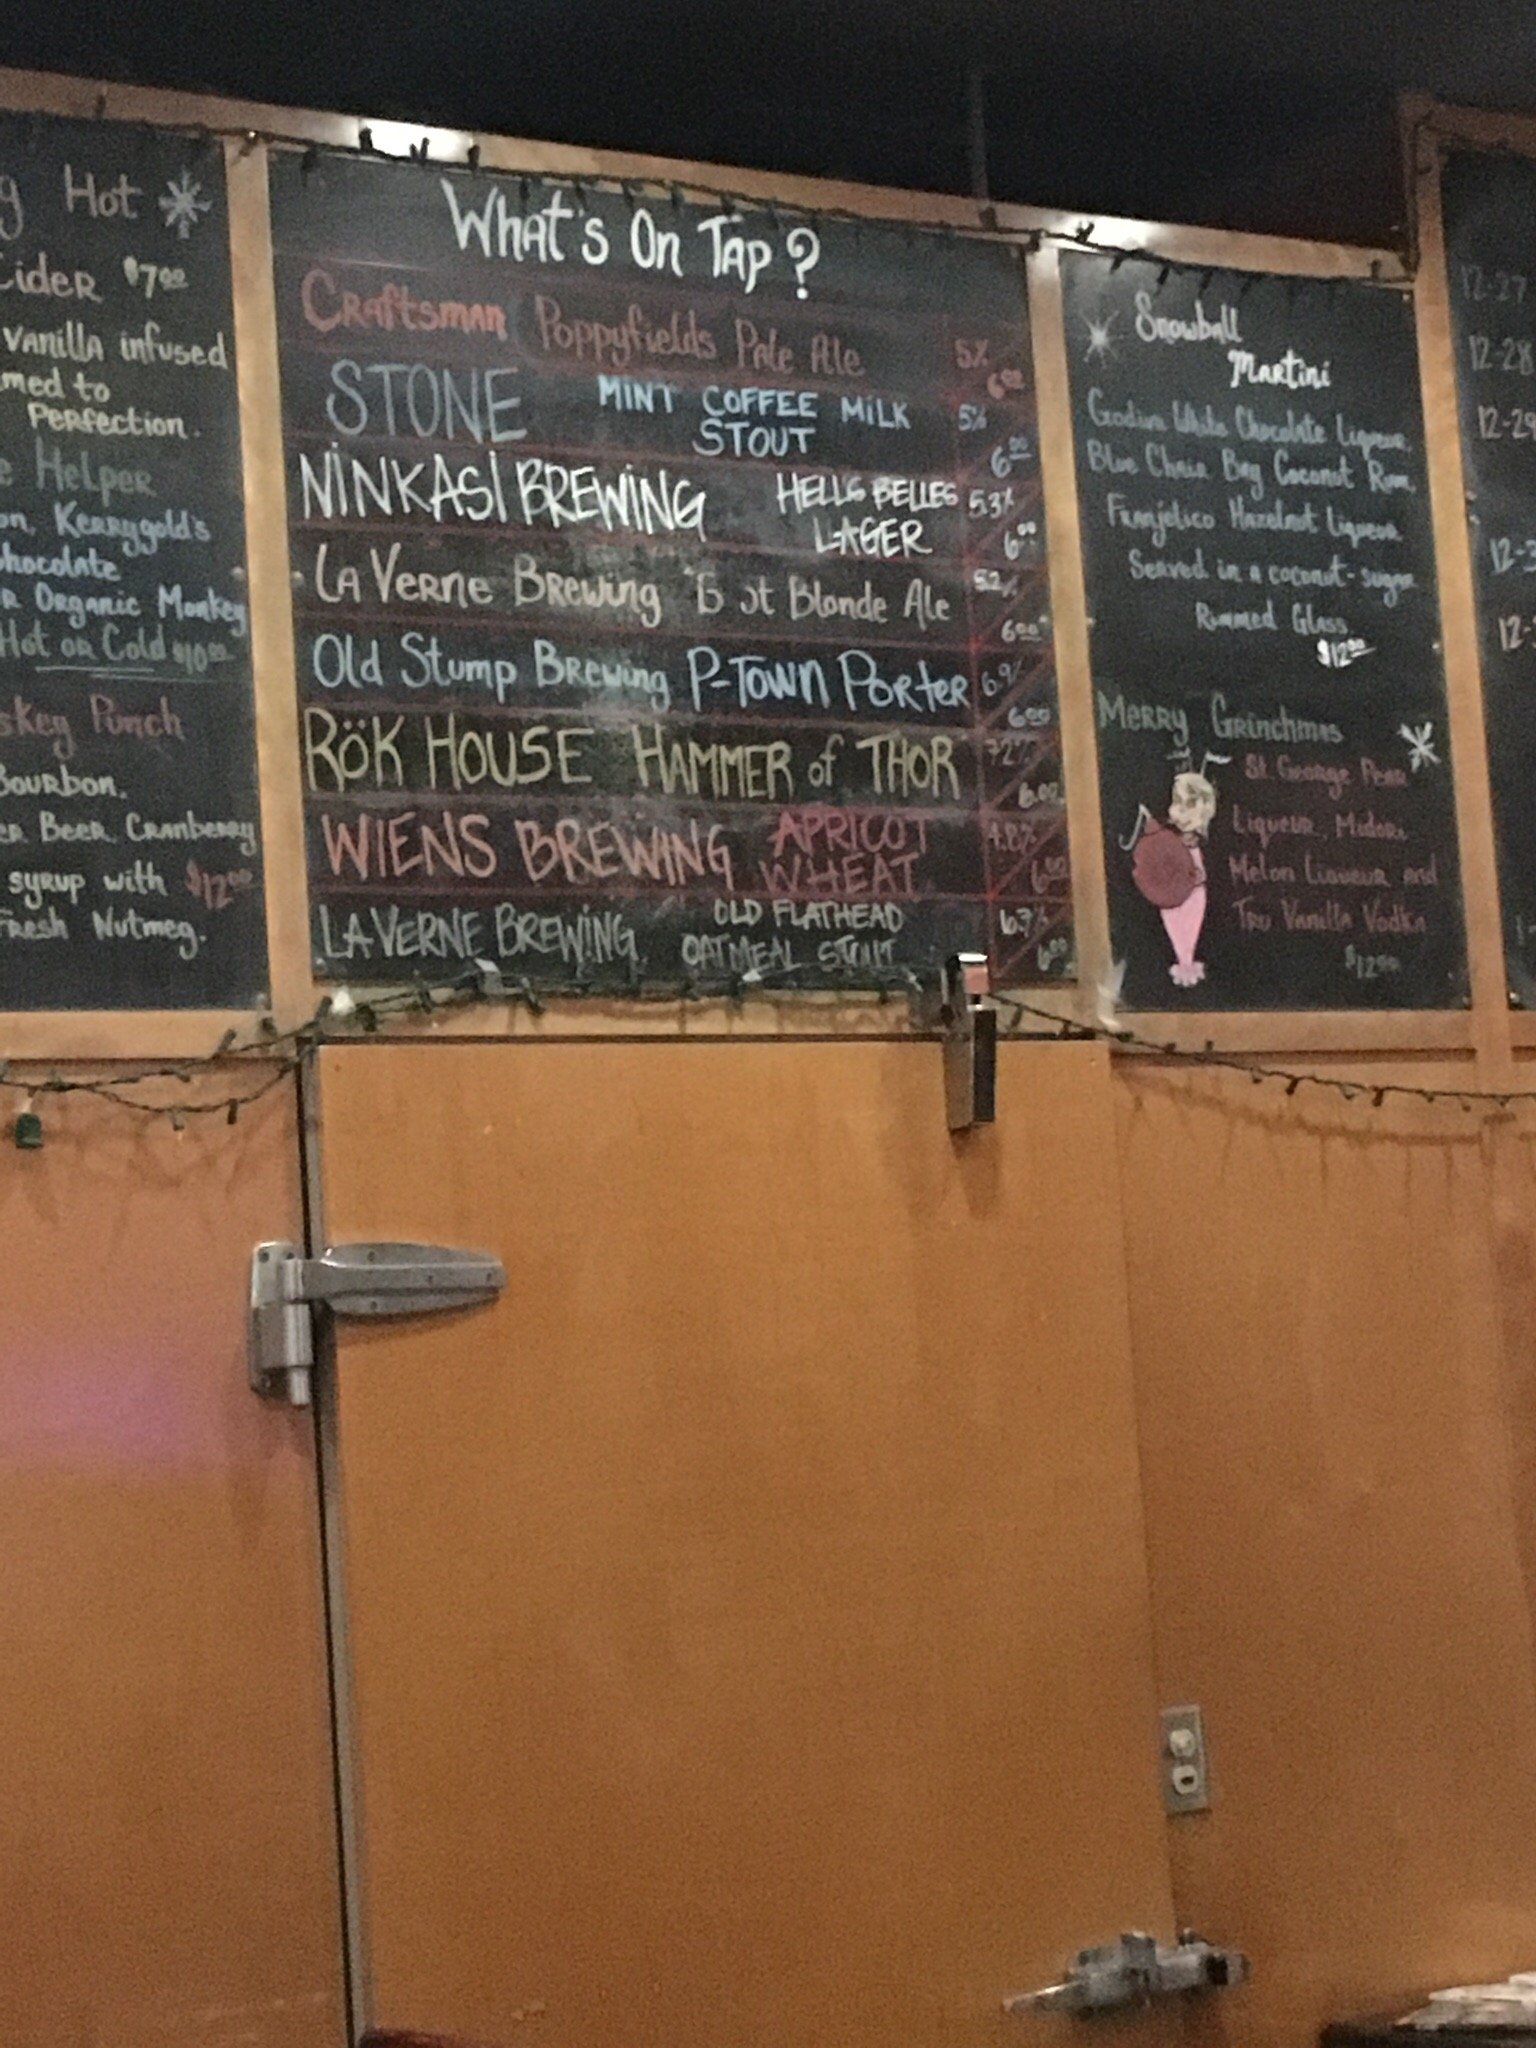 Hot
Cider $7.00
vanilla infused
to
Perfection.
Helper
Kerrygold's
Chocolate
Organic Monkey
Hot or Cold $10.00
Punch
Bourbon.
Beer Cranberry
syrup with $12.00
Fresh Nutmeg.
What's On Tap?
Craftsman Poppyfields Pale Ale 5% 6.00
STONE MINT COFFEE MILK STOUT 5% 6.00
NINKASI BREWING HELLS BELLES LAGER 5.3% 6.00
La Verne Brewing Blonde Ale 5.2% 6.00
Old Stump Brewing P-Town Porter 6.9% 6.00
RöK HOUSE HAMMER of THOR 7.2% 6.00
WIENS BREWING APRICOT WHEAT 4.8% 6.00
LA VERNE BREWING. OLD FLATHEAD OATMEAL STOUT 6.7% 6.00
Snowball
Martini
Godiva White Chocolate Liqueur,
Blue Chair Bay Coconut Rum,
Franjelico Hazelnut Liqueur
Served in a coconut-sugar
Rimmed Glass
$12.00
Merry Grinchmas
St. George Pear
Liqueur, Midori
Melon Liqueur and
Tru Vanilla Vodka
$12.00
12-27
12-28
12-29